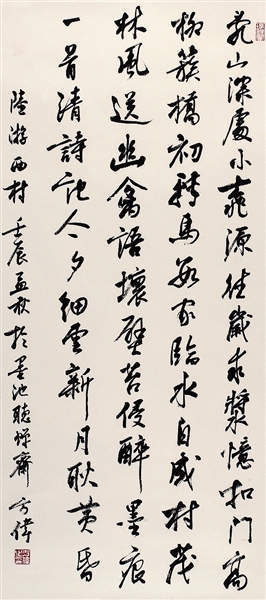 亂山深處小桃源往歲求漿憶叩門高
柳簇橋初轉馬數家臨水自成村茂
林風送幽禽語壞壁苔侵醉墨痕
一首清詩記今夕細雲新月耿黃昏
陸游西村 壬辰孟秋於墨池聽蟬齋 方偉